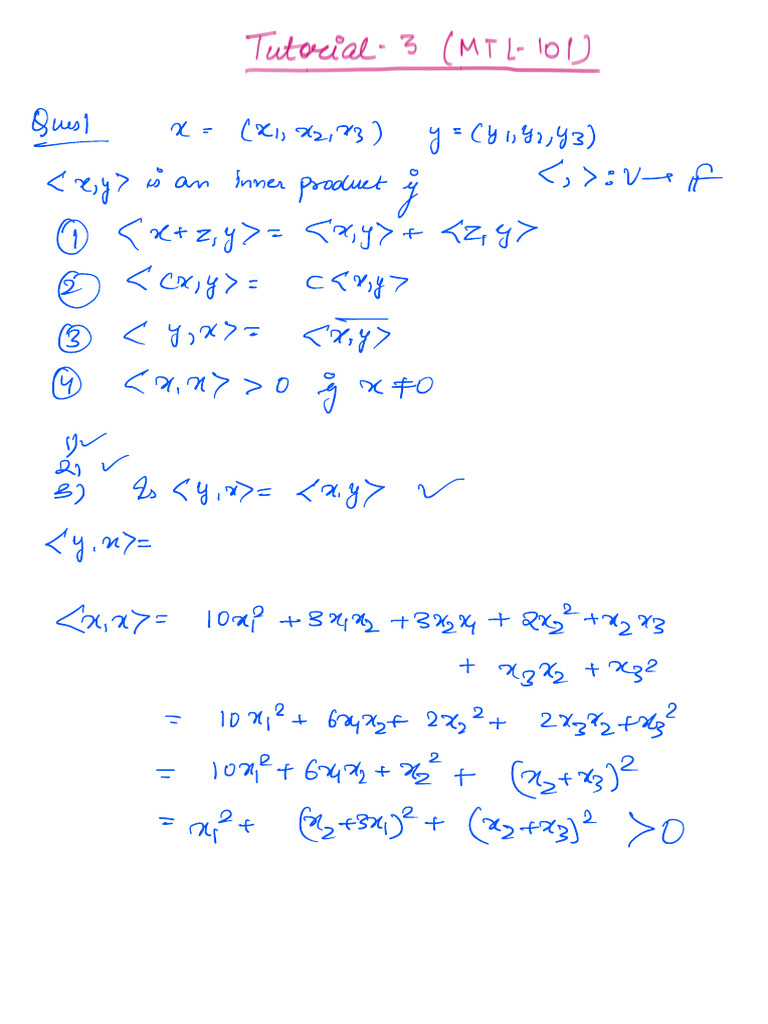 Tutorial - 3 (MTL-101)
Ques1 x = (x₁, x₂, x₃) y = (y₁, y₂, y₃)
<x,y> is an inner product if <,>: V → F
① <x+z, y> = <x,y> + <z,y>
② <cx,y> = c<x,y>
③ <y,x> = \overline{<x,y>}
④ <x,x> > 0 if x ≠ 0
1) ✓
2) ✓
3) Is <y,x> = <x,y> ✓
<y,x> =
<x,x> = 10x₁² + 3x₁x₂ + 3x₂x₁ + 2x₂² + x₂x₃
+ x₃x₂ + x₃²
= 10x₁² + 6x₁x₂ + 2x₂² + 2x₃x₂ + x₃²
= 10x₁² + 6x₁x₂ + x₂² + (x₂+x₃)²
= x₁² + (x₂+3x₁)² + (x₂+x₃)² > 0